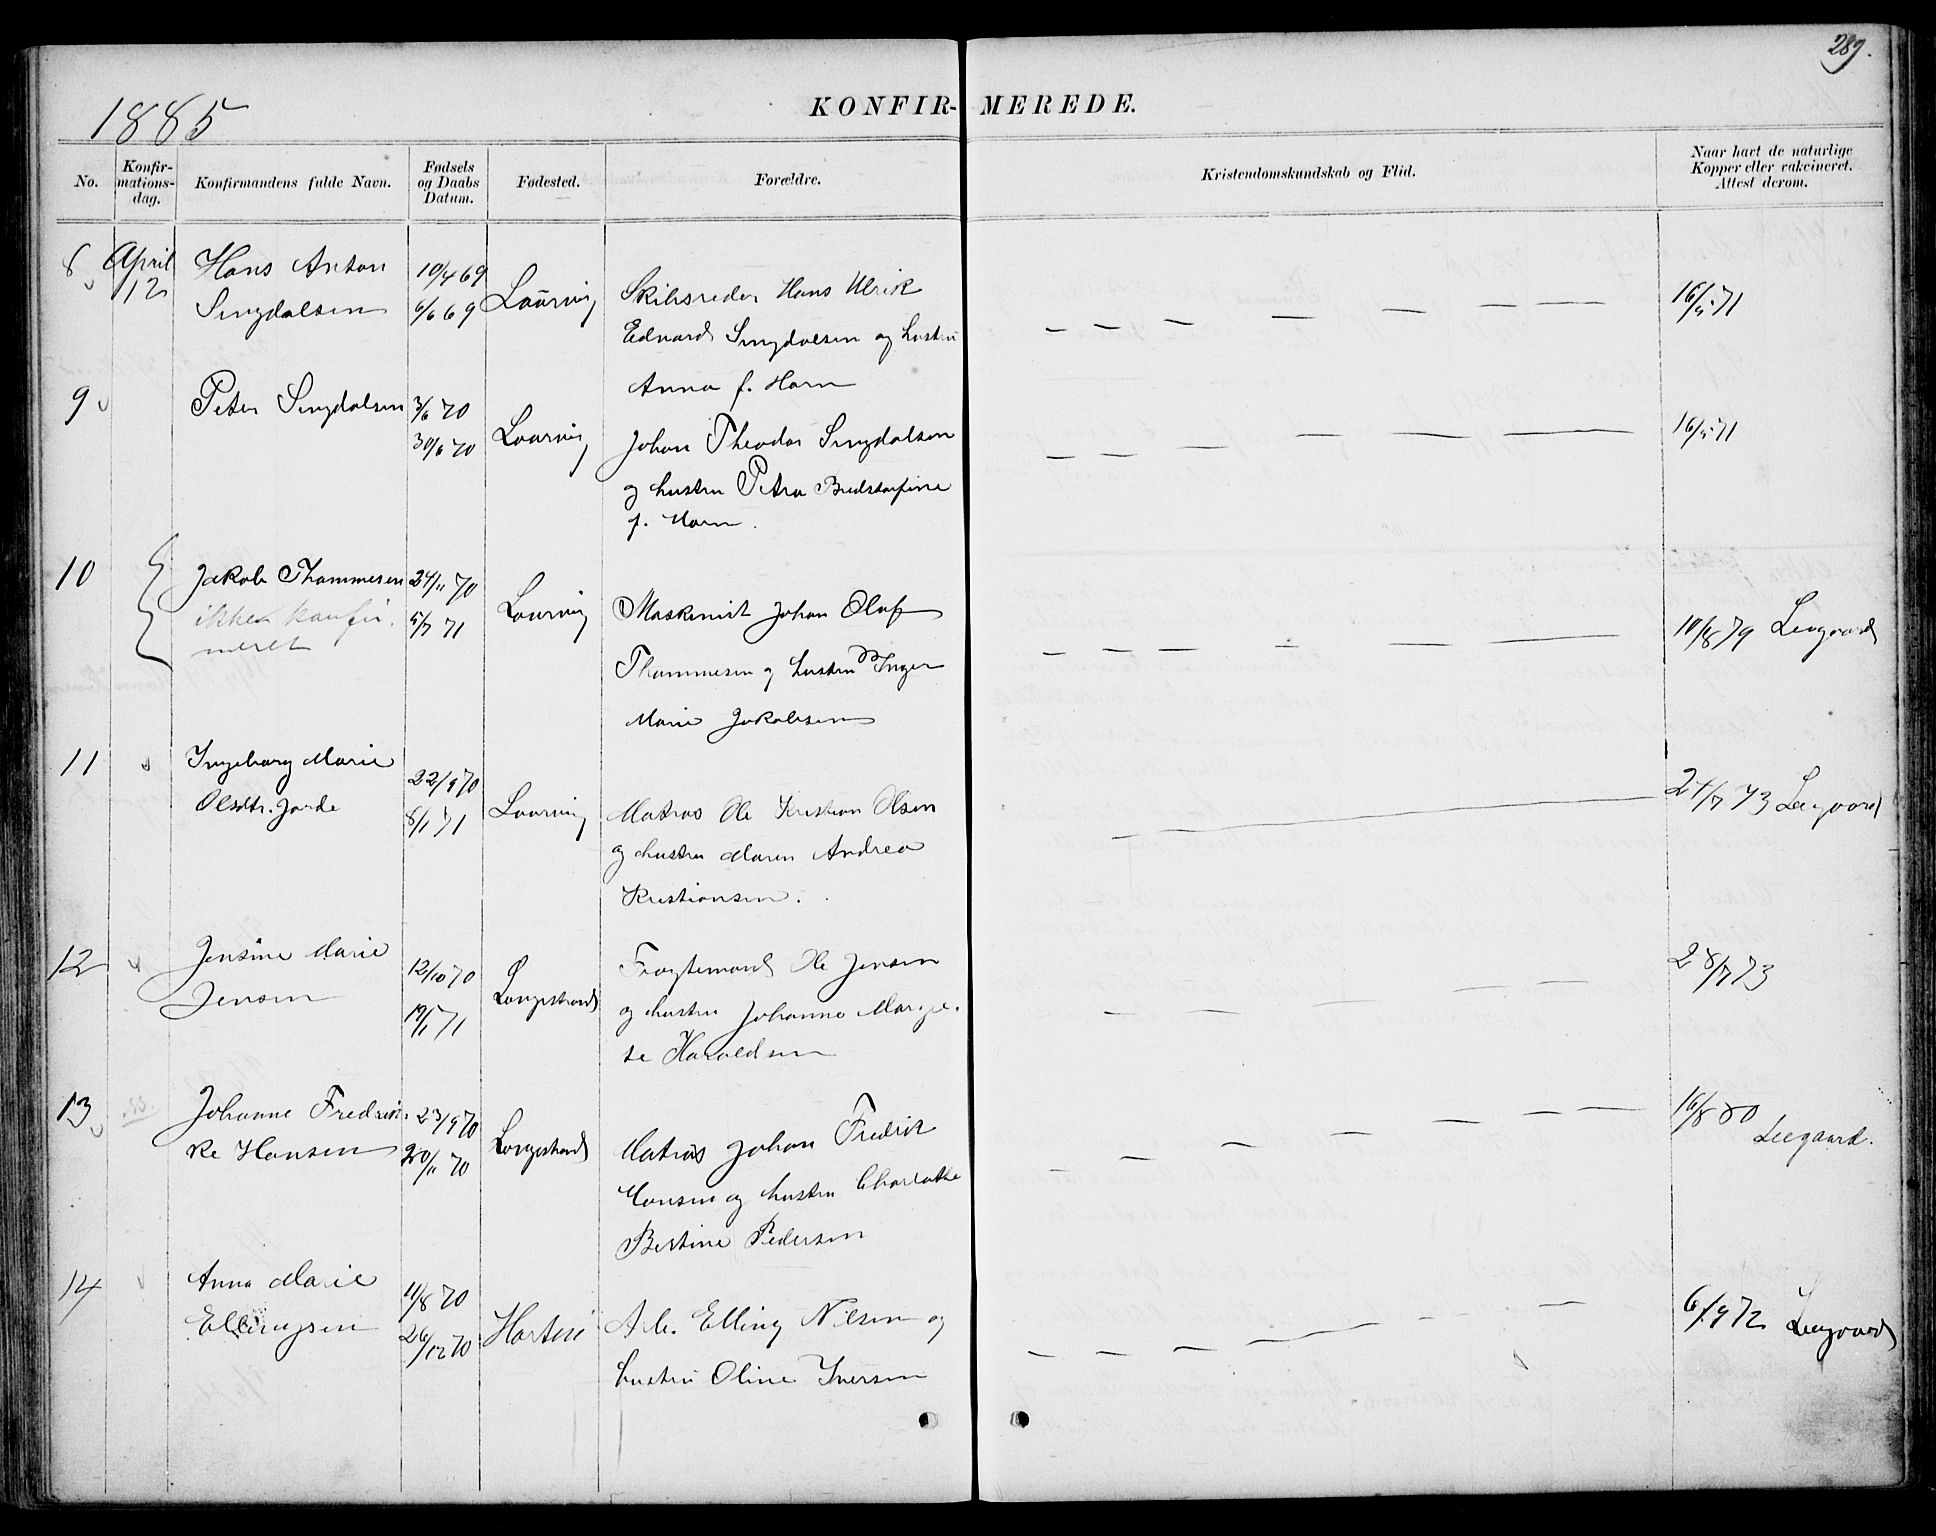 289.
1885
KONFIR- MEREDE.
No.
Konfir-
mations-
dag.
Konfirmandens fulde Navn.
Fødsels
og Daabs
Datum.
Fødested.
Forældre.
Kristendomskundskab og Flid.
Naar havt de naturlige
Kopper eller vakcineret.
Attest derom.
8 April
12
Hans Anton
Singdalsen
10/4 69
6/6 69
Laurvig
Skibsreder Hans Ulrik
Edvard Singdalsen og hustru
Anna f. Horn
16/5 71
9
Peter Singdalsen
3/6 70
30/6 70
Laurvig
Johan Theodor Singdalsen
og hustru Petra
f. Horn.
16/5 71
10
Jakob Thommesen
ikke konfir.
meret
24/11 70
5/7 71
Laurvig
Maskinist Johan Olaf
Thommesen og hustru Inger
Marie Jakobsen
10/8 79 Leegaard
11
Ingeborg Marie
Olsdtr. Jorde
22/9 70
8/1 71
Laurvig
Matros Ole Kristian Olsen
og hustru Maren Andrea
Kristiansen.
24/7 73 Leegaard
12
Jensine Marie
Jensen
12/10 70
19/1 71
Langestrand
Fragtemand Ole Jensen
og hustru Johanne Margre-
te Haraldsen
28/7 73
13
Johanne Fredrik-
ke Hansen
23/9 70
20/11 70
Langestrand
Matros Johan Fredrik
Hansen og hustru Charlotte
Bertine Pedersen
16/8 80
Leegaard.
14
Anna Marie
Ellingsen
11/8 70
26/12 70
Horten
Arb. Elling Nilsen og
hustru Oline Iversen
6/9 72 Leegaard